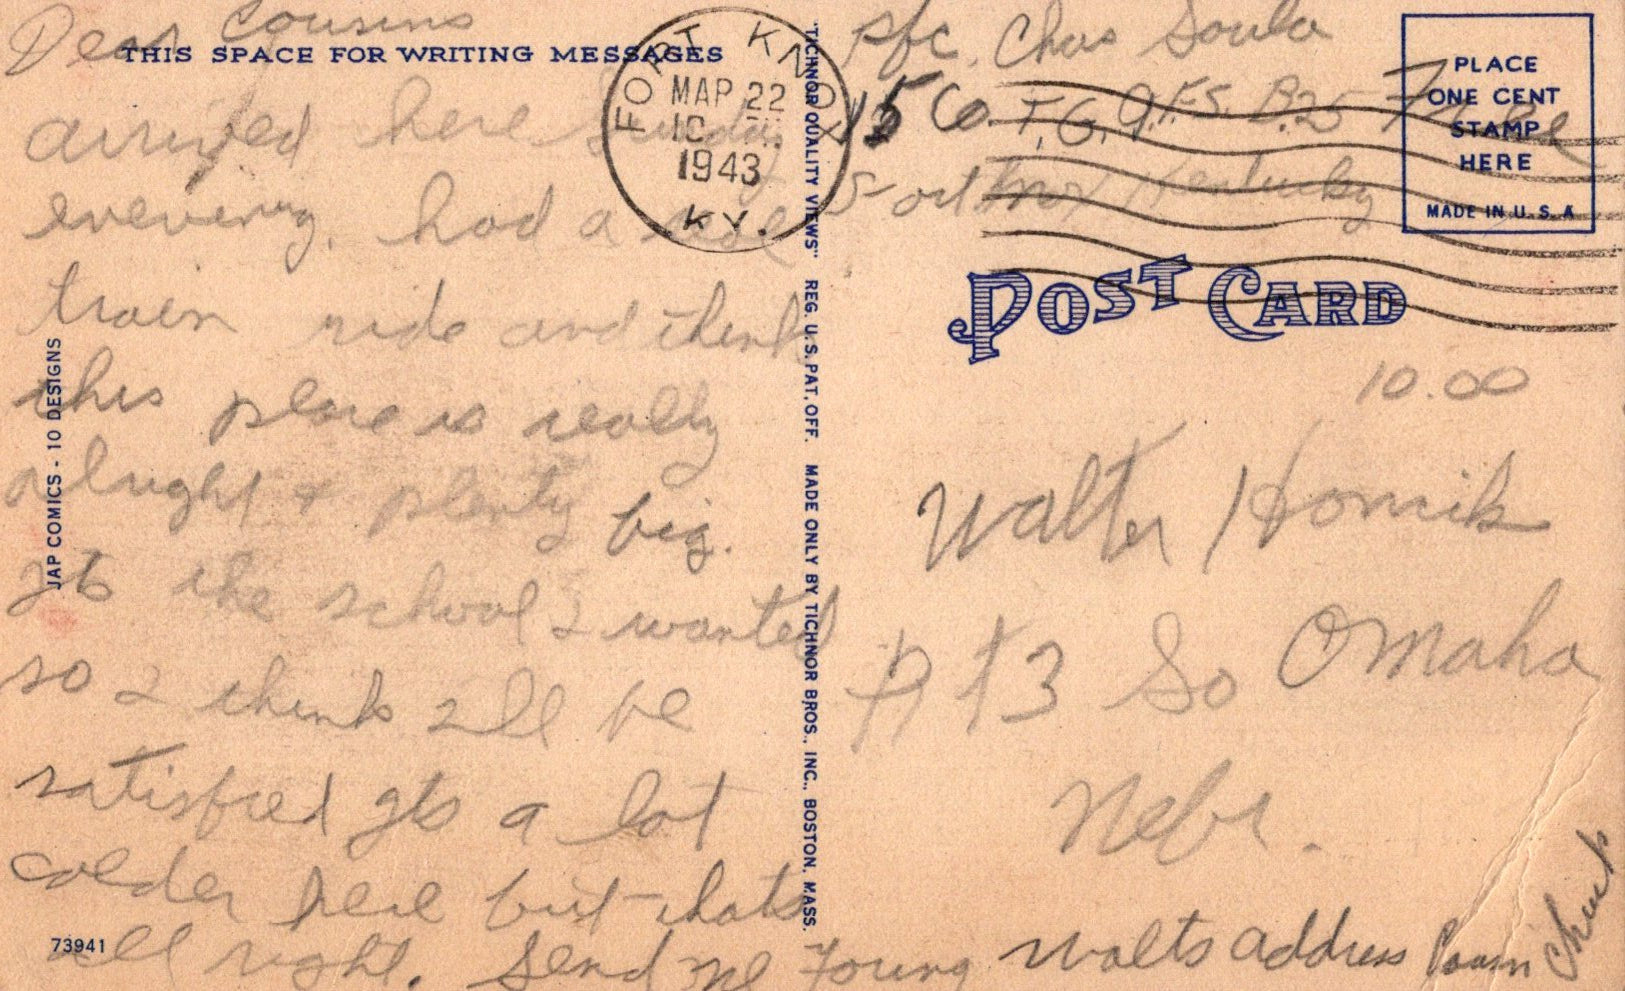 Dear Cousins
THIS SPACE FOR WRITING MESSAGES
arrived here Sunday
evening, had a nice
train ride and think
this place is really
alright & plenty big.
Its the school I wanted
so I think I'll be
satisfied Its a lot
colder here but thats
all right. Send me Young
Walts address
Chuck
JAP COMICS - 10 DESIGNS
73941
FORT KNOX
MAR 22
10
1943
KY.
"TICHNOR QUALITY VIEWS" REG. U. S. PAT. OFF. MADE ONLY BY TICHNOR BROS., INC., BOSTON, MASS.
Pfc. Chas Soula
15 Co. T.G. A.F.S. B.25 Free
Fort Knox Kentucky
PLACE
ONE CENT
STAMP
HERE
MADE IN U. S. A
POST CARD
10.00
Walter Homik
#3 So Omaha
Nebr.